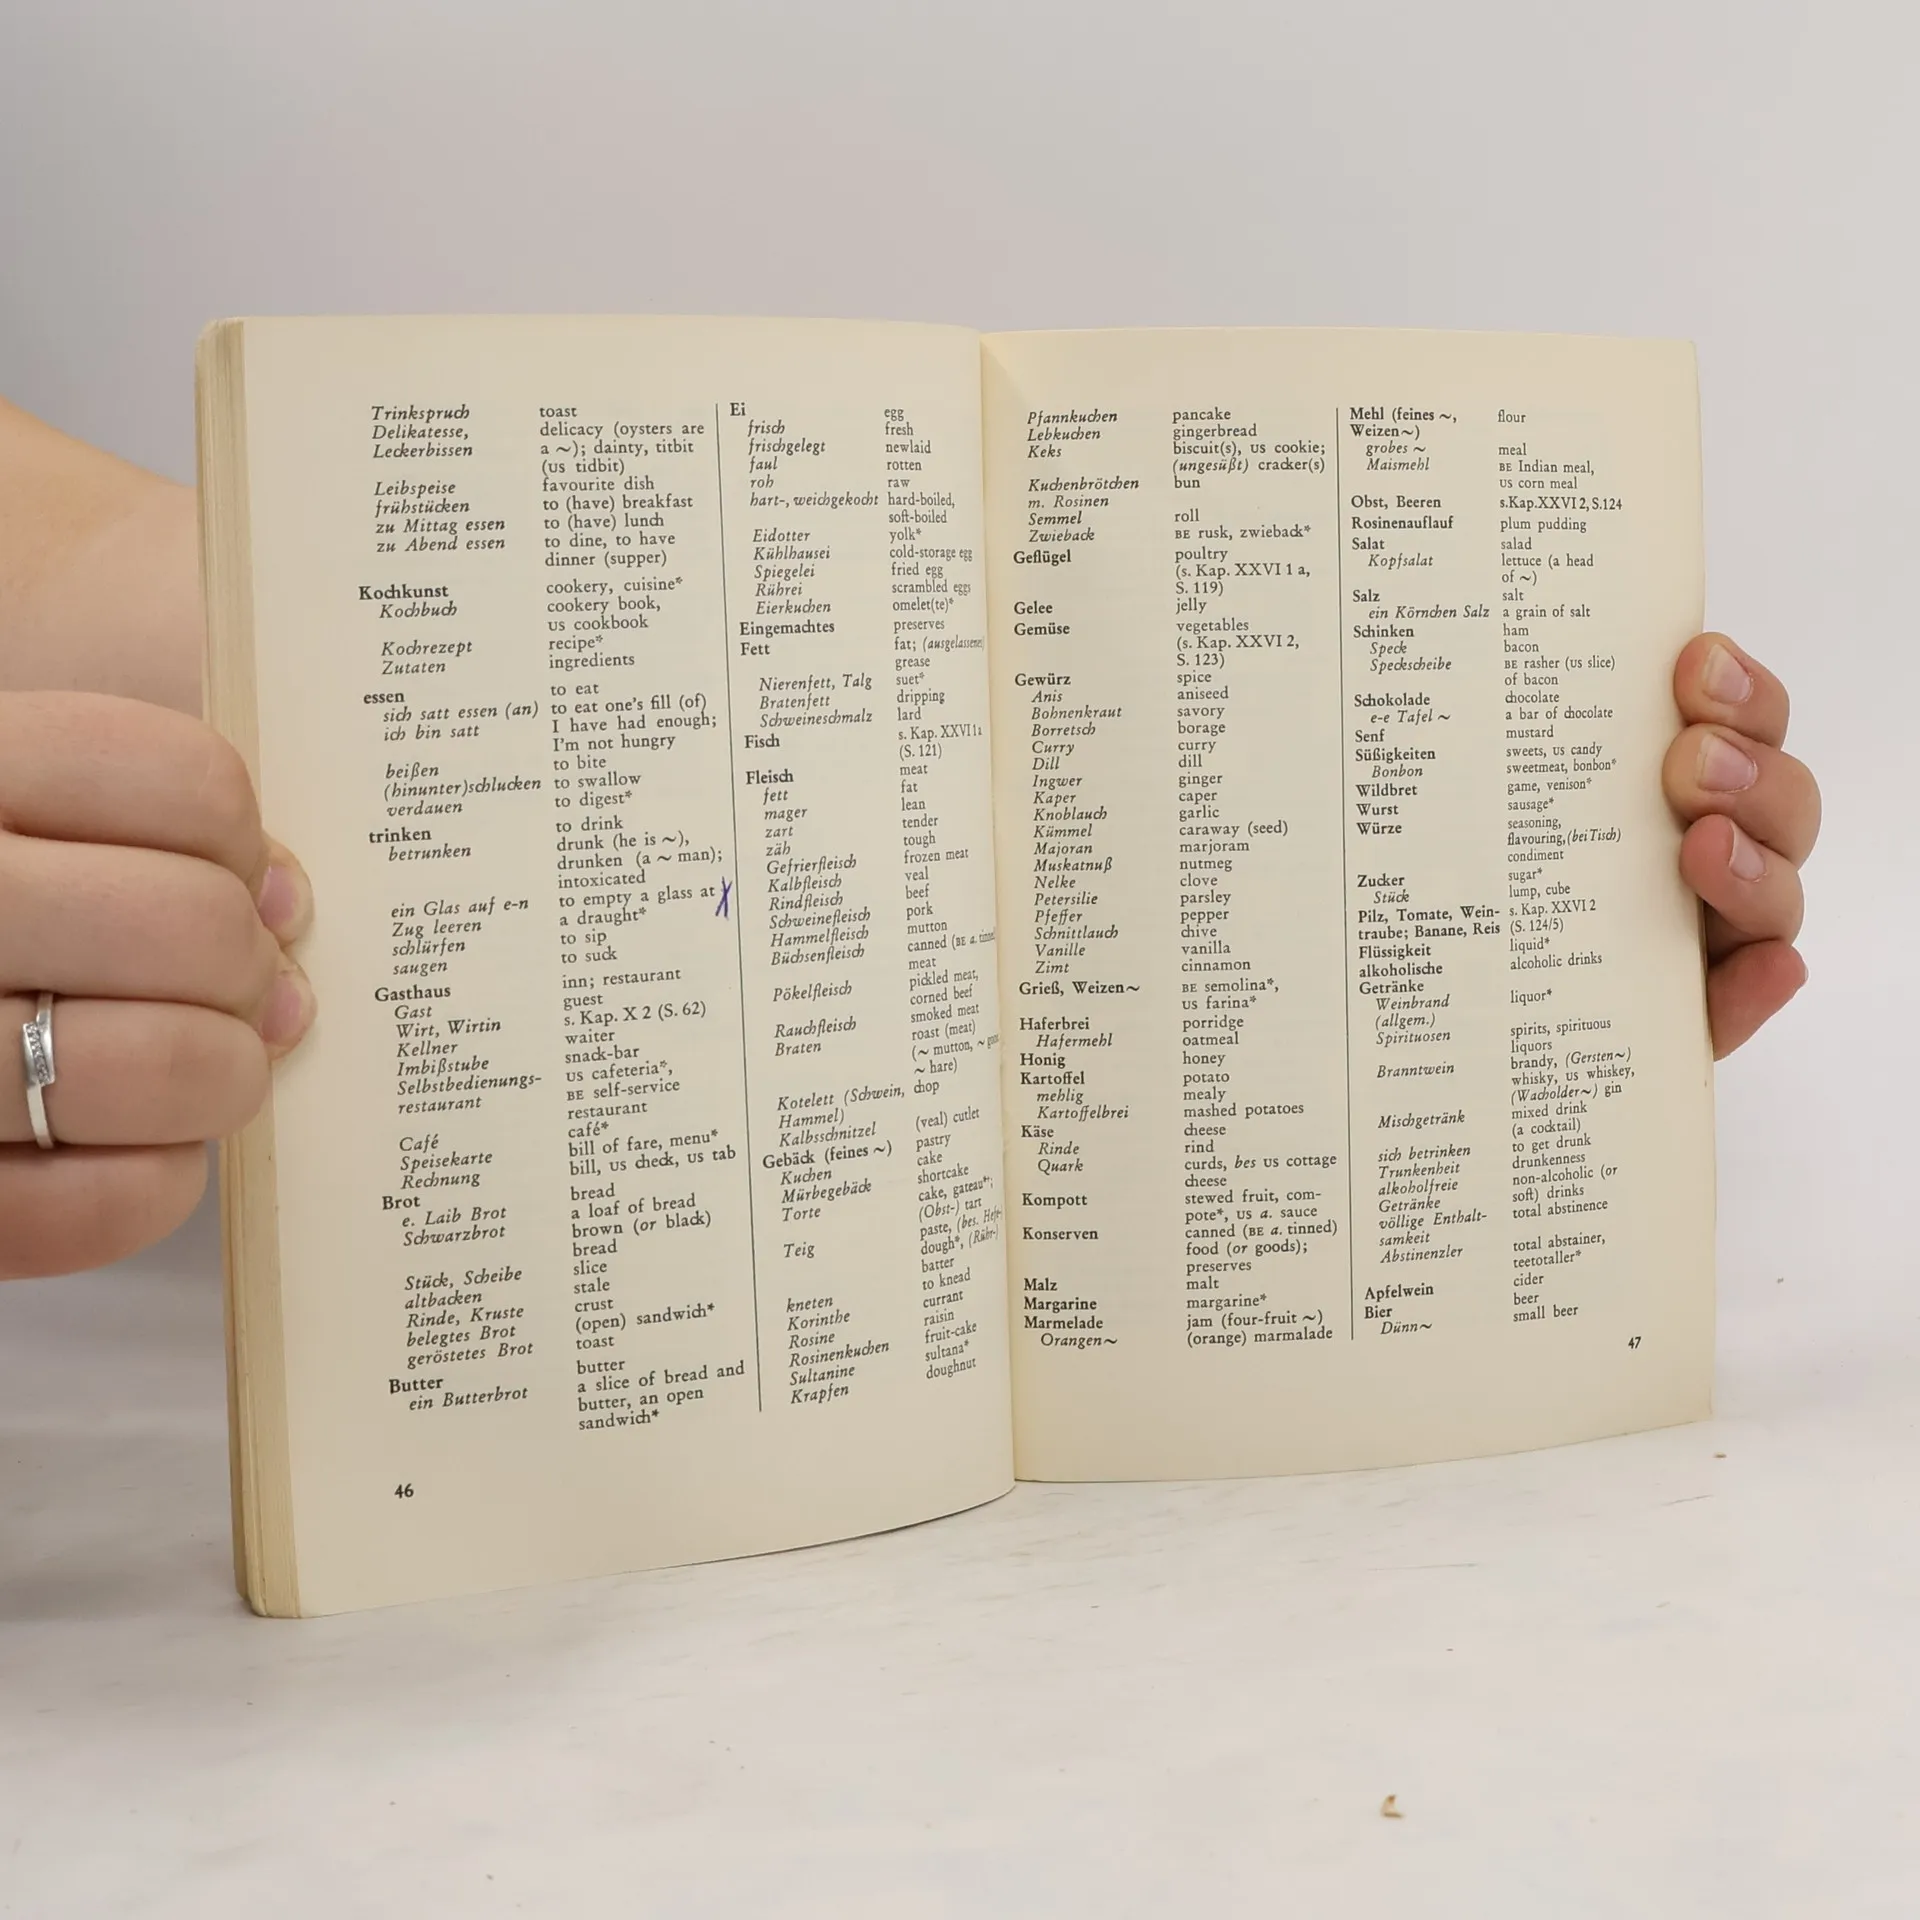 Trinkspruch toast
Delikatesse, delicacy (oysters are
Leckerbissen a ~); dainty, titbit
(US tidbit)
Leibspeise favourite dish
frühstücken to (have) breakfast
zu Mittag essen to (have) lunch
zu Abend essen to dine, to have
dinner (supper)
Kochkunst cookery, cuisine*
Kochbuch cookery book,
US cookbook
Kochrezept recipe*
Zutaten ingredients
essen to eat
sich satt essen (an) to eat one's fill (of)
ich bin satt I have had enough;
I'm not hungry
beißen to bite
(hinunter)schlucken to swallow
verdauen to digest*
trinken to drink
betrunken drunk (he is ~),
drunken (a ~ man);
intoxicated
ein Glas auf e-n to empty a glass at
Zug leeren a draught*
schlürfen to sip
saugen to suck
Gasthaus inn; restaurant
Gast guest
Wirt, Wirtin s. Kap. X 2 (S. 62)
Kellner waiter
Imbißstube snack-bar
Selbstbedienungs- US cafeteria*,
restaurant BE self-service
restaurant
Café café*
Speisekarte bill of fare, menu*
Rechnung bill, US check, US tab
Brot bread
e. Laib Brot a loaf of bread
Schwarzbrot brown (or black)
bread
Stück, Scheibe slice
altbacken stale
Rinde, Kruste crust
belegtes Brot (open) sandwich*
geröstetes Brot toast
Butter butter
ein Butterbrot a slice of bread and
butter, an open
sandwich*
46
Ei egg
frisch fresh
frischgelegt newlaid
faul rotten
roh raw
hart-, weichgekocht hard-boiled,
soft-boiled
Eidotter yolk*
Kühlhausei cold-storage egg
Spiegelei fried egg
Rührei scrambled eggs
Eierkuchen omelet(te)*
Eingemachtes preserves
Fett fat; (ausgelassenes)
grease
Nierenfett, Talg suet*
Bratenfett dripping
Schweineschmalz lard
Fisch s. Kap. XXVI 1a
(S. 121)
Fleisch meat
fett fat
mager lean
zart tender
zäh tough
Gefrierfleisch frozen meat
Kalbfleisch veal
Rindfleisch beef
Schweinefleisch pork
Hammelfleisch mutton
Büchsenfleisch canned (BE a. tinned)
meat
Pökelfleisch pickled meat,
corned beef
Rauchfleisch smoked meat
Braten roast (meat)
(~ mutton, ~
~ hare)
Kotelett (Schwein, chop
Hammel)
Kalbsschnitzel (veal) cutlet
Gebäck (feines ~) pastry
Kuchen cake
Mürbegebäck shortcake
Torte cake, gateau*;
(Obst-) tart
Teig paste, (bes. Hefe-)
dough*, (Rühr-)
batter
kneten to knead
Korinthe currant
Rosine raisin
Rosinenkuchen fruit-cake
Sultanine sultana*
Krapfen doughnut
Pfannkuchen pancake
Lebkuchen gingerbread
Keks biscuit(s), US cookie;
(ungesüßt) cracker(s)
Kuchenbrötchen bun
m. Rosinen
Semmel roll
Zwieback BE rusk, zwieback*
Geflügel poultry
(s. Kap. XXVI 1 a,
S. 119)
Gelee jelly
Gemüse vegetables
(s. Kap. XXVI 2,
S. 123)
Gewürz spice
Anis aniseed
Bohnenkraut savory
Borretsch borage
Curry curry
Dill dill
Ingwer ginger
Kaper caper
Knoblauch garlic
Kümmel caraway (seed)
Majoran marjoram
Muskatnuß nutmeg
Nelke clove
Petersilie parsley
Pfeffer pepper
Schnittlauch chive
Vanille vanilla
Zimt cinnamon
Grieß, Weizen~ BE semolina*,
US farina*
Haferbrei porridge
Hafermehl oatmeal
Honig honey
Kartoffel potato
mehlig mealy
Kartoffelbrei mashed potatoes
Käse cheese
Rinde rind
Quark curds, bes US cottage
cheese
Kompott stewed fruit, com-
pote*, US a. sauce
Konserven canned (BE a. tinned)
food (or goods);
preserves
Malz malt
Margarine margarine*
Marmelade jam (four-fruit ~)
Orangen~ (orange) marmalade
Mehl (feines ~, flour
Weizen~)
grobes ~ meal
Maismehl BE Indian meal,
US corn meal
Obst, Beeren s.Kap.XXVI 2, S.124
Rosinenauflauf plum pudding
Salat salad
Kopfsalat lettuce (a head
of ~)
Salz salt
ein Körnchen Salz a grain of salt
Schinken ham
Speck bacon
Speckscheibe BE rasher (US slice)
of bacon
Schokolade chocolate
e-e Tafel ~ a bar of chocolate
Senf mustard
Süßigkeiten sweets, US candy
Bonbon sweetmeat, bonbon*
Wildbret game, venison*
Wurst sausage*
Würze seasoning,
flavouring,(bei Tisch)
condiment
Zucker sugar*
Stück lump, cube
Pilz, Tomate, Wein- s. Kap. XXVI 2
traube; Banane, Reis (S. 124/5)
Flüssigkeit liquid*
alkoholische alcoholic drinks
Getränke
Weinbrand liquor*
(allgem.)
Spirituosen spirits, spirituous
liquors
Branntwein brandy, (Gersten~)
whisky, US whiskey,
(Wacholder~) gin
Mischgetränk mixed drink
(a cocktail)
sich betrinken to get drunk
Trunkenheit drunkenness
alkoholfreie non-alcoholic (or
Getränke soft) drinks
völlige Enthalt- total abstinence
samkeit
Abstinenzler total abstainer,
teetotaller*
Apfelwein cider
Bier beer
Dünn~ small beer
47